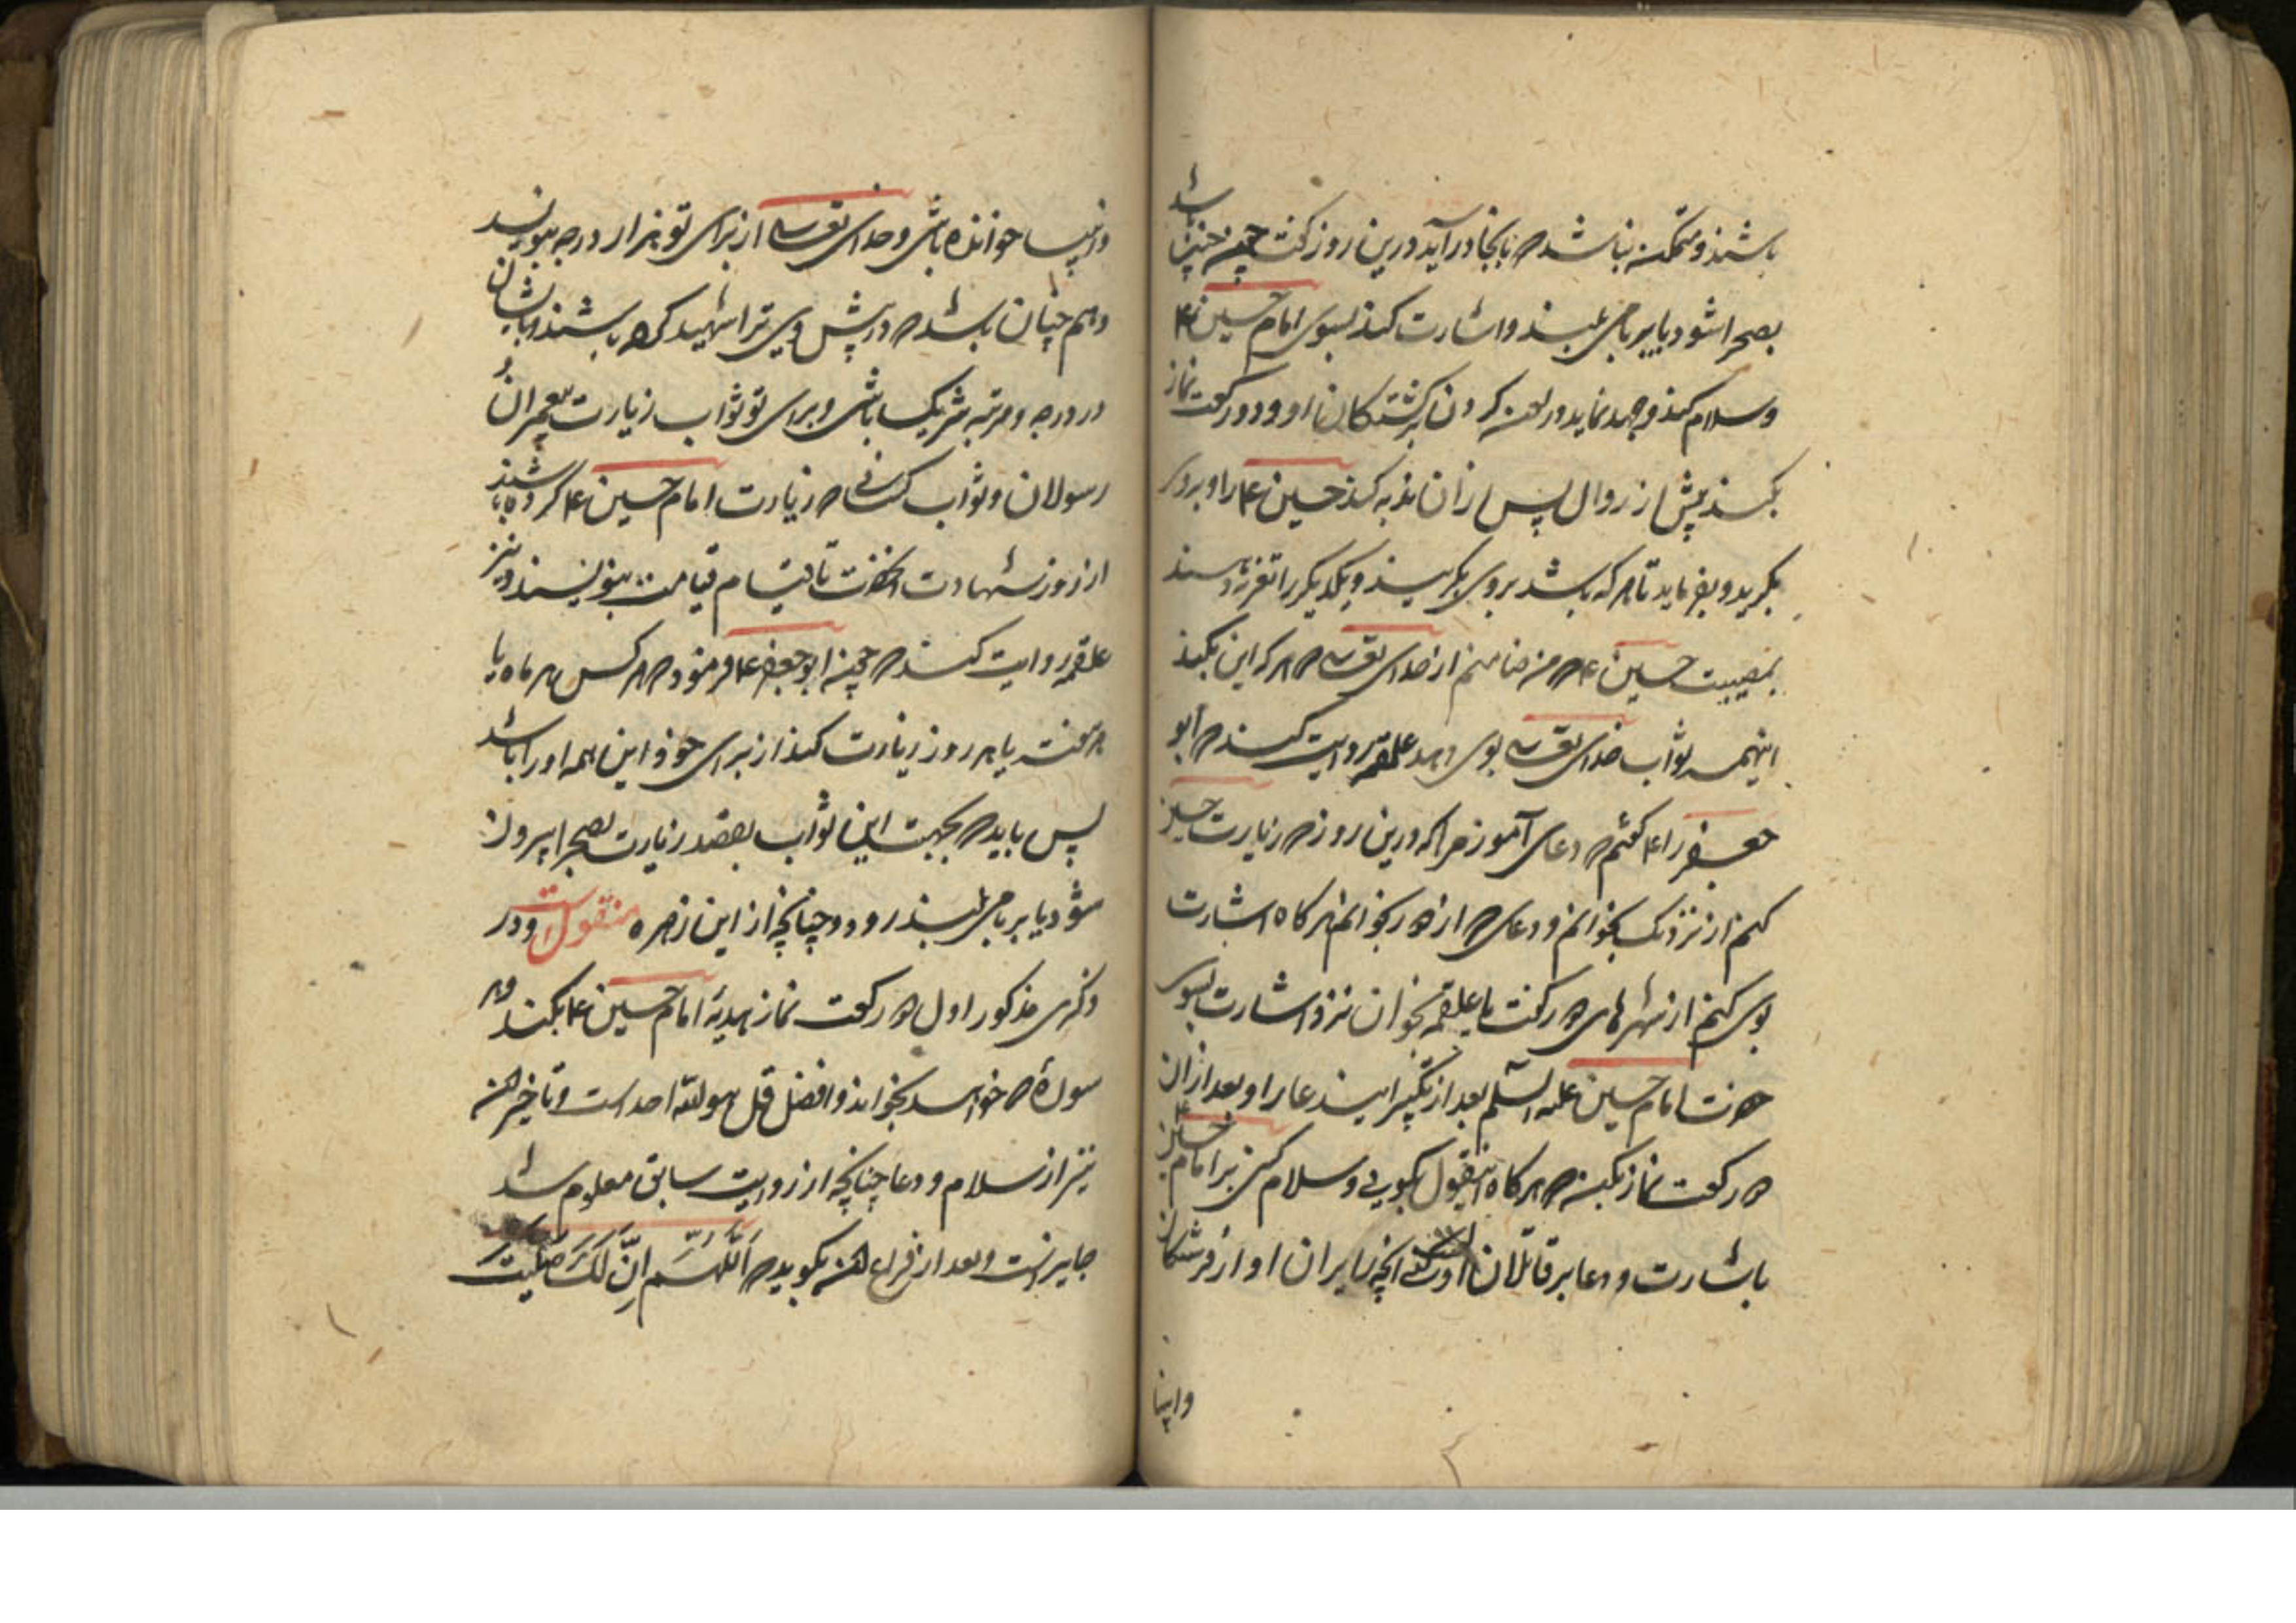 باشند و ممکن نباشد که بانجا در آید درین روز گفت چون چنین باشد
بصحرا شود یا بر بامی بلند و اشارت کند بسوی امام حسین ع
و سلام کند و جهد نماید در لعنه کردن بر کشتکان او و دو رکعت نماز
بکند پیش از زوال پس از ان ندبه کند حسین ع را و بر وی
بکرید و بفرماید تا هر که باشد بر وی بکریند و یکدیکر را تعزیه دهند
بمصیبت حسین ع که من ضامنم از خدای تعالی که هر که این بکند
اینهمه ثواب خدای تعالی بوی دهد علقمه روایت کند که ابو
جعفر را ع کفتم که دعای آموز مرا که درین روز که زیارت حسین
کنم از نزدیک بخوانم و دعای که از دور بخوانم هر کاه اشارت
بوی کنم از شهرهای دور کفت یا علقمه بخوان نزد اشارت بسوی
حضرت امام حسین علیه السلم بعد از تکبیر این دعا را و بعد ازان
دو رکعت نماز بکن که هر کاه اینقول بکویی و سلام کنی بر امام حسین ع
باشارت و دعا بر قاتلان او انچه زایران او از فرشتکان
وانبیا
وانبیا خوانده باشی و خدای تعالی از برای تو هزار درجه بنویسد
و هم چنان باشد که در پیش وی ترا شهید کرده باشند و با ایشان
در درجه و مرتبه شریک باشی و برای تو ثواب زیارت پیغمبران و
رسولان و ثواب کسانی که زیارت امام حسین ع کرده باشند
از روز شهادت انحضرت تا قیام قیامت بنویسند و نیز
علقمه روایت کند که چون ابو جعفر ع فرمود که هر کس هر ماه یا
هر هفته یا هر روز زیارت کند از برای خود این همه او را باشد
پس باید که بجهت این ثواب بقصد زیارت بصحرا بیرون
شود یا بر بامی بلند رود و چنانچه از این زهره منقول است و در
ذکری مذکور اول دو رکعت نماز هدیهٔ امام حسین ع بکند و هر
سورهٔ که خواهد بخواند و افضل قل هو الله احد است و تاخیر این
نیز از سلام و دعا چنانچه از روایت سابق معلوم شد
جایز است و بعد از فراغ این بکوید که اَللّهُمَّ اِنِّی لَکَ صَلَّیتُ